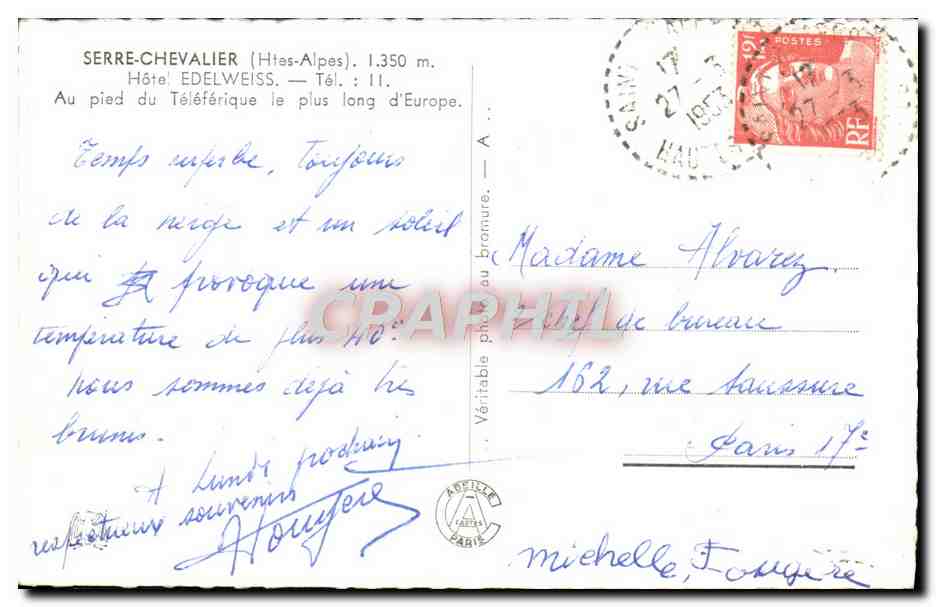 SERRE-CHEVALIER (Htes-Alpes). 1.350 m.
Hôtel EDELWEISS. — Tél. : 11.
Au pied du Téléférique le plus long d'Europe.
Temps superbe, Toujours
de la neige et un soleil
qui provoque une
température de plus 40°.
nous sommes déjà très
brunes.
A Lundi prochain
respectueux souvenirs
HFougère
Véritable photo au bromure. — A
ABEILLE
CARTES
PARIS
SAINT
HAUTES
17 - 3
27
1953
12F
POSTES
RF
17 3
27
Madame Alvarez
chef de bureau
162, rue Saussure
Paris 17e
michelle Fougère
CRAPHIL